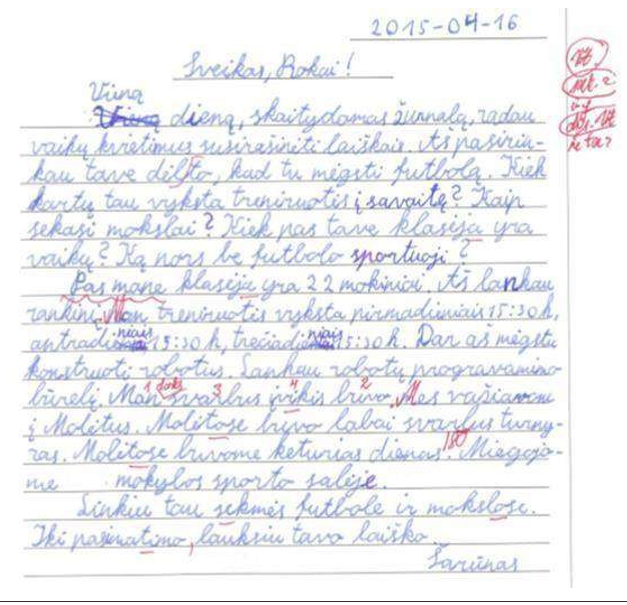 2015-04-16
Sveikas, Rokai!
Vieną
dieną, skaitydamas žurnalą, radau
vaikų kvietimus susirašinėti laiškais. Aš pasirin-
kau tave dėlto, kad tu mėgsti futbolą. Kiek
kartų tau vyksta treniruotis į savaitę? Kaip
sekasi mokslai? Kiek pas tave klasėja yra
vaikų? Ką nors be futbolo sportuoji?
Pas mane klasėja yra 22 mokiniai. Aš lankau
rankinį. Man treniruotis vyksta pirmadieniais 15:30 h,
antradieniais 15:30 h, trečiadieniais 15:30 h. Dar aš mėgstu
konstruoti robotus. Lankau robotų programavimo
1 3 4 2
būrelį. Man svarbus įvikis buvo. Mes važiavom
į Molėtus. Molėtose buvo labai svarbus turny-
ras. Molėtose buvome keturias dienas. Miegojo-
me mokylos sporto salėje.
Linkiu tau sekmės futbole ir mokslose.
Iki pasimatimo, lauksiu tavo laiško
Šarūnas